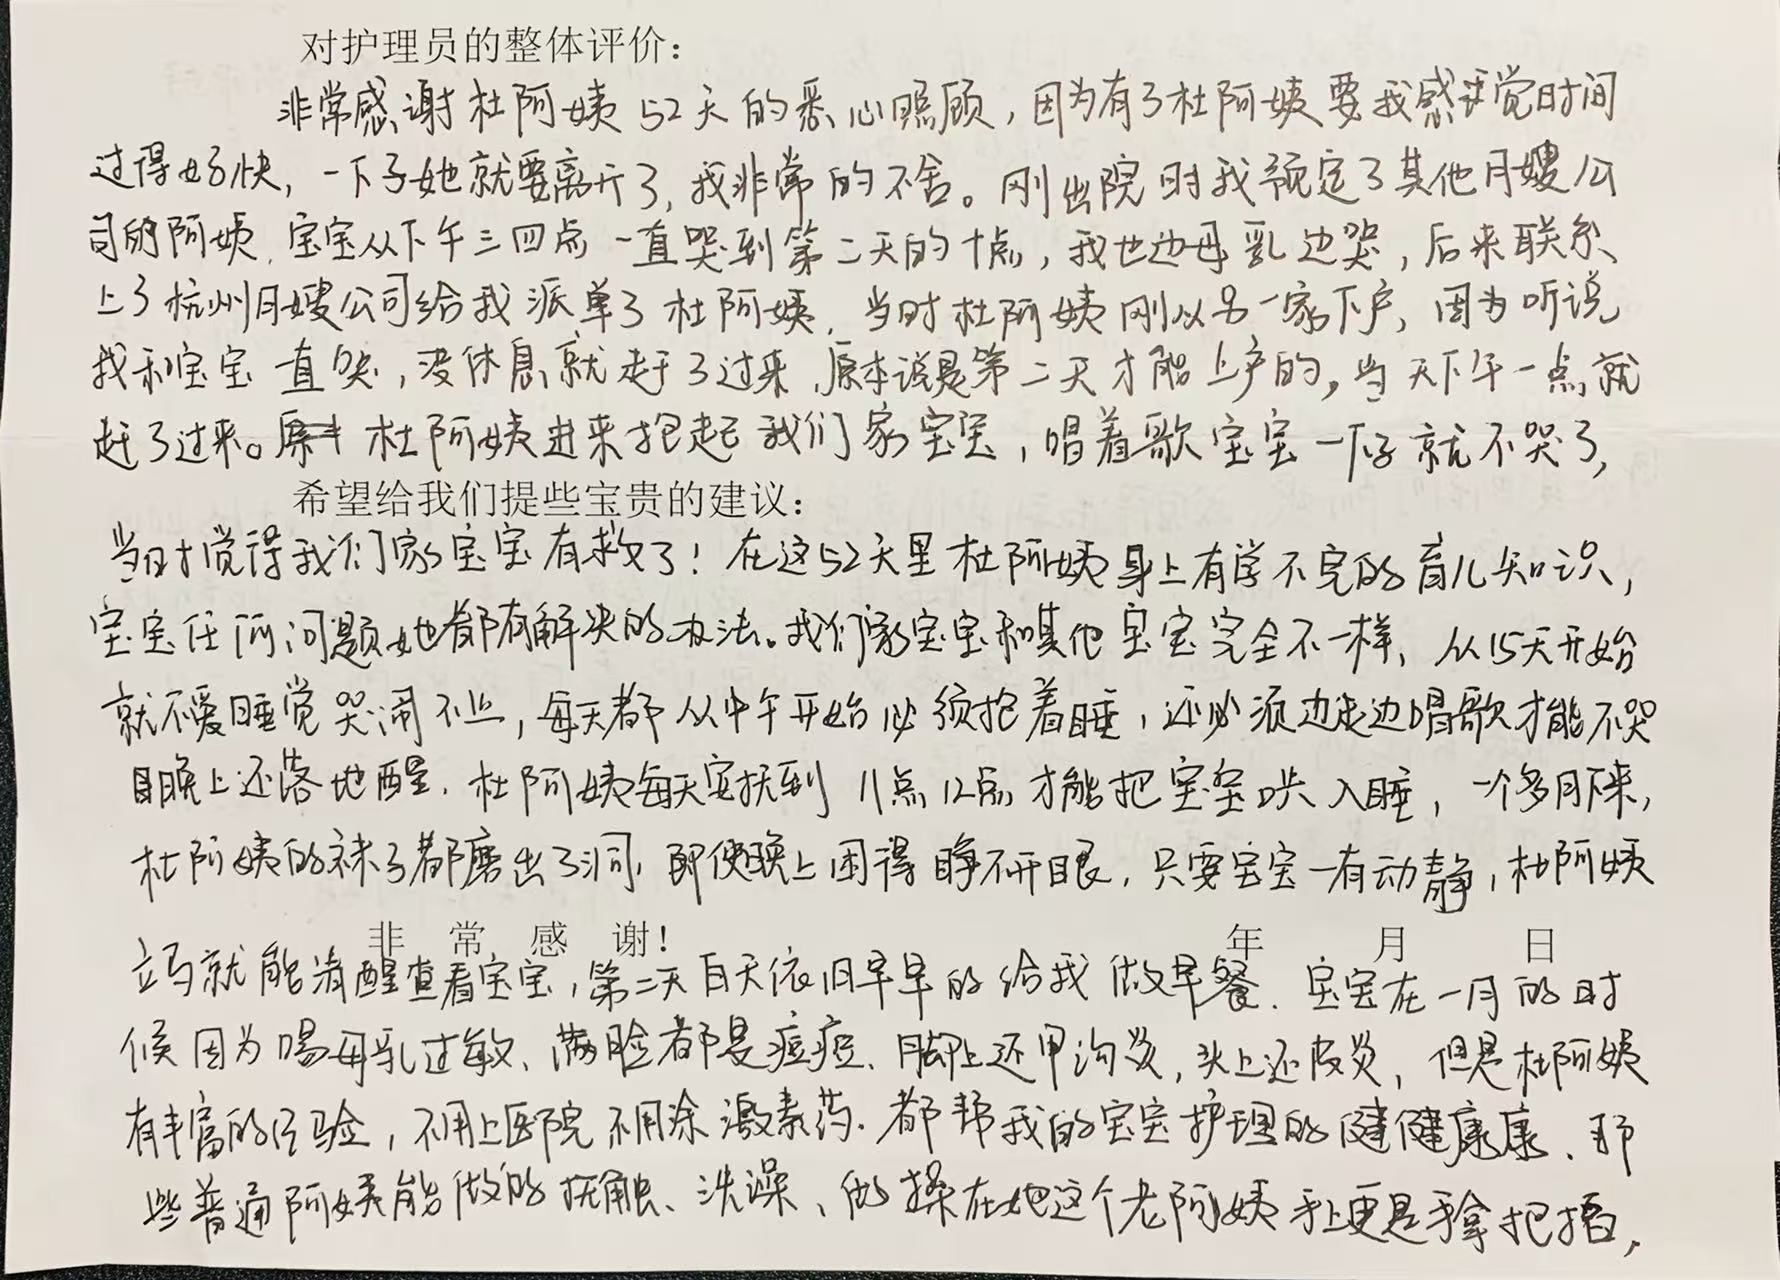 对护理员的整体评价：
非常感谢杜阿姨52天的悉心照顾，因为有了杜阿姨要我感觉时间
过得好快，一下子她就要离开了，我非常的不舍。刚出院时我预定了其他月嫂公
司的阿姨，宝宝从下午三四点一直哭到第二天的十点，我也边母乳边哭，后来联系
上了杭州月嫂公司给我派单了杜阿姨，当时杜阿姨刚从另一家下户，因为听说
我和宝宝一直哭，没休息就赶了过来，原本说是第二天才能上户的，当天下午一点就
赶了过来。杜阿姨进来抱起我们家宝宝，唱着歌宝宝一下子就不哭了，
希望给我们提些宝贵的建议：
当时觉得我们家宝宝有救了！在这52天里杜阿姨身上有学不完的育儿知识，
宝宝任何问题她都有解决的办法。我们家宝宝和其他宝宝完全不一样，从15天开始
就不爱睡觉哭闹不止，每天都从中午开始必须抱着睡，还必须边走边唱歌才能不哭
且晚上还落地醒，杜阿姨每天安抚到11点12点才能把宝宝哄入睡，一个多月下来，
杜阿姨的袜子都磨出了洞，即使晚上困得睁不开眼，只要宝宝一有动静，杜阿姨
非常感谢！ 年 月 日
立马就能清醒查看宝宝，第二天白天依旧早早的给我做早餐。宝宝在一月的时
候因为喝母乳过敏、满脸都是痘痘、脚上还甲沟炎，头上还皮炎，但是杜阿姨
有丰富的经验，不用上医院不用涂激素药、都帮我的宝宝护理的健健康康、那
些普通阿姨能做的抚触、洗澡、做操在她这个老阿姨手上更是手拿把掐，